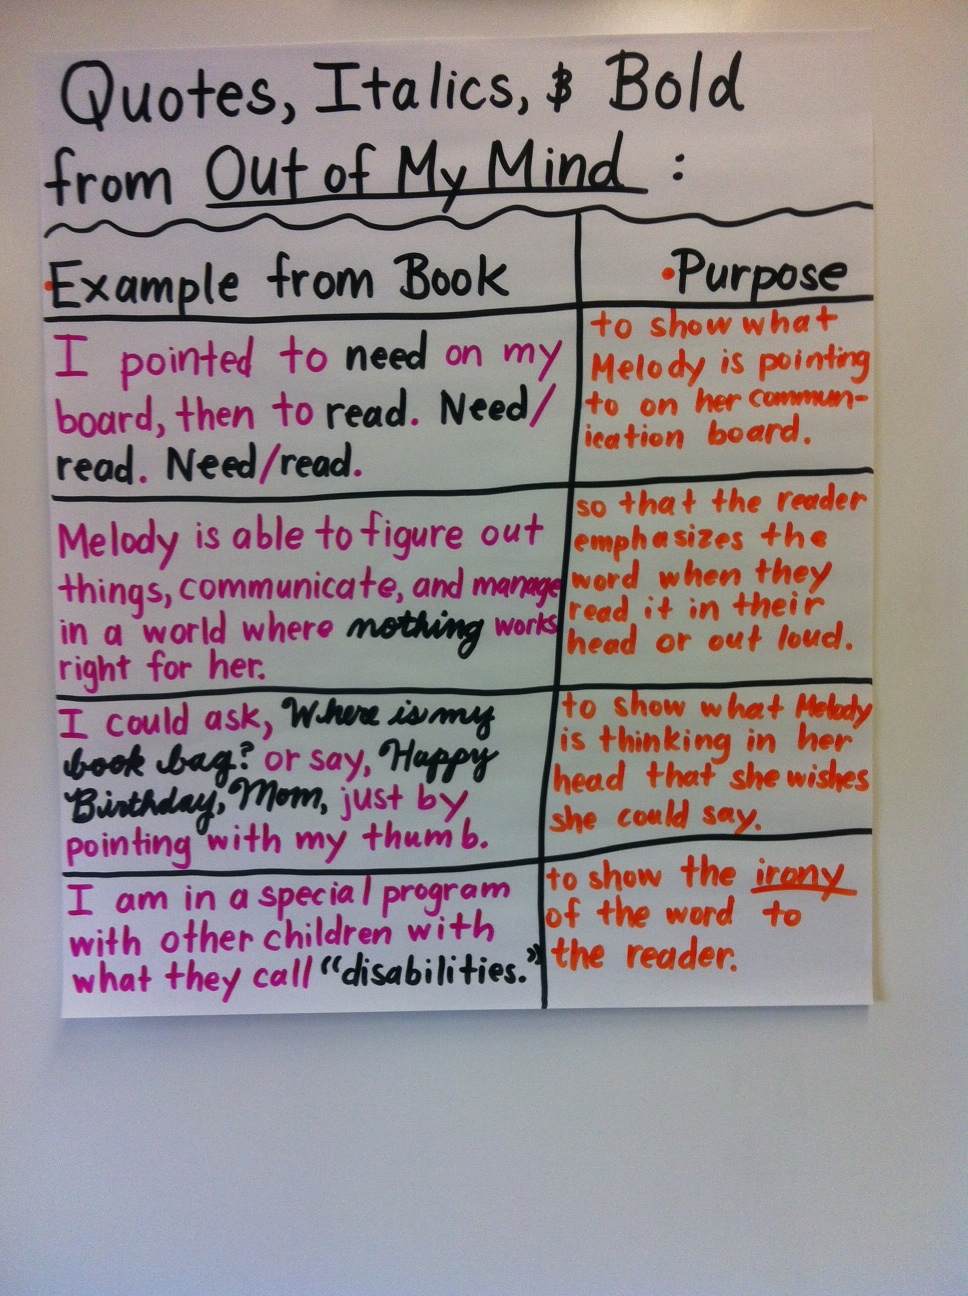 Quotes, Italics, & Bold
from Out of My Mind :
Example from Book
I pointed to need on my
board, then to read. Need/
read. Need/read.
Melody is able to figure out
things, communicate, and manage
in a world where nothing works
right for her.
I could ask, Where is my
book bag? or say, Happy
Birthday, Mom, just by
pointing with my thumb.
I am in a special program
with other children with
what they call "disabilities."
Purpose
to show what
Melody is pointing
to on her commun-
ication board.
so that the reader
emphasizes the
word when they
read it in their
head or out loud.
to show what Melody
is thinking in her
head that she wishes
she could say.
to show the irony
of the word to
the reader.